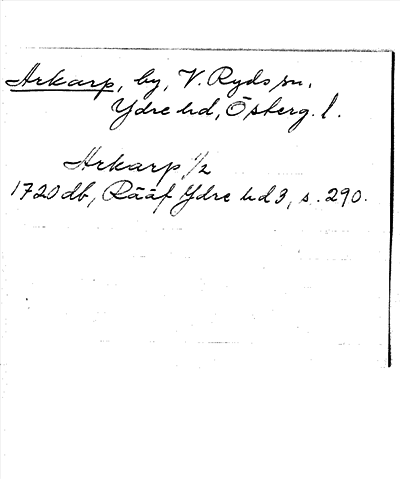 Arkarp, by, V. Ryds sn.
Ydre hd, Österg. l.
Arkarp 1/2
1720 db, Rääf Ydre hd 3, s. 290.